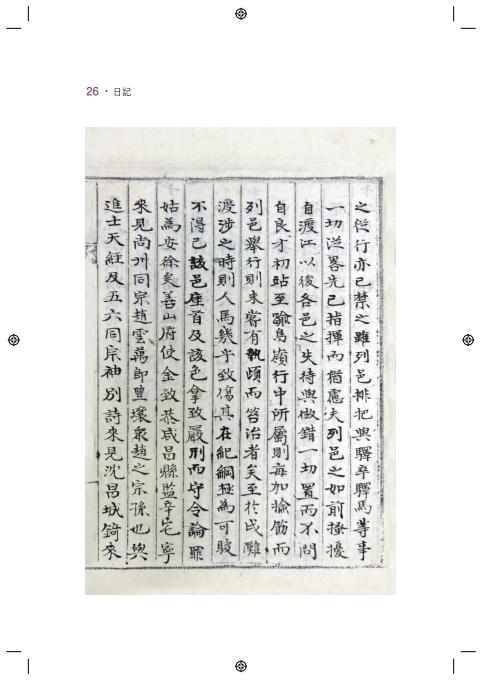 26 · 日記
之從行亦已禁之雖列邑排把與驛卒驛馬等事
一切從畧先已指揮而猶慮夫列邑之如前擾
自渡江以後各邑之失待與做錯一切置而不問
自良才初站至踰鳥嶺行中所屬則每加操飭而
列邑擧行則未嘗有執頉而笞治者矣至於灘
渡涉之時則人馬幾乎致傷其在紀綱極爲可駭
不得已該邑座首及該色拿致嚴刑而守令論罪
姑爲安徐矣善山府使金致恭咸昌縣監辛宅寧
來見尙州同宗趙雲萬卽豊壤象趙之宗孫也與
進士天經及五六同宗袖別詩來見沈昌城錡來